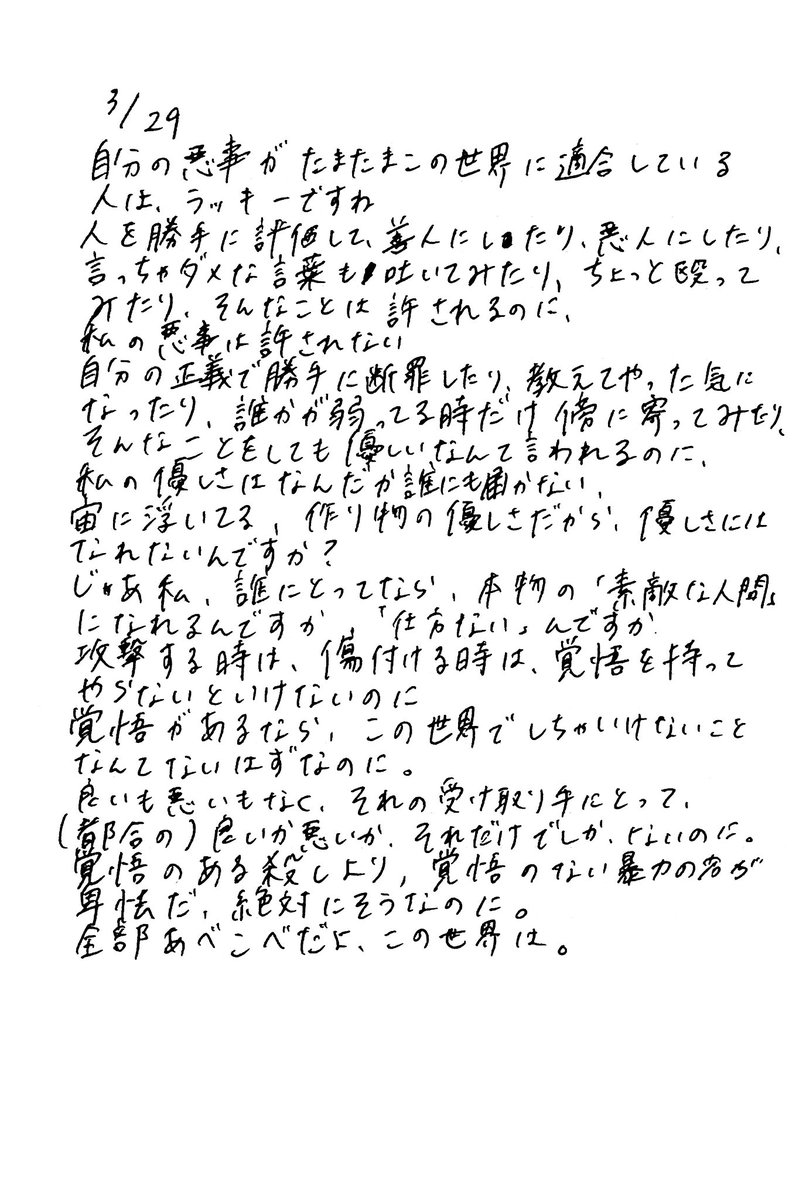 3/29
自分の悪事がたまたまこの世界に適合している
人は、ラッキーですね
人を勝手に評価して、善人にしたり、悪人にしたり、
言っちゃダメな言葉も吐いてみたり、ちょっと殴って
みたり、そんなことは許されるのに、
私の悪事は許されない
自分の正義で勝手に断罪したり、教えてやった気に
なったり、誰かが弱ってる時だけ傍に寄ってみたり、
そんなことをしても優しいなんて言われるのに、
私の優しさはなんだか誰にも届かない、
宙に浮いてる、作り物の優しさだから、優しさには
なれないんですか？
じゃあ私、誰にとってなら、本物の「素敵な人間」
になれるんですか、「仕方ない」んですか
攻撃する時は、傷付ける時は、覚悟を持って
やらないといけないのに
覚悟があるなら、この世界でしちゃいけないこと
なんてないはずなのに。
良いも悪いもなく、それの受け取り手にとって、
(都合の)良いか悪いか、それだけでしかないのに。
覚悟のある殺しより、覚悟のない暴力の方が
卑怯だ、絶対にそうなのに。
全部あべこべだよ、この世界は。